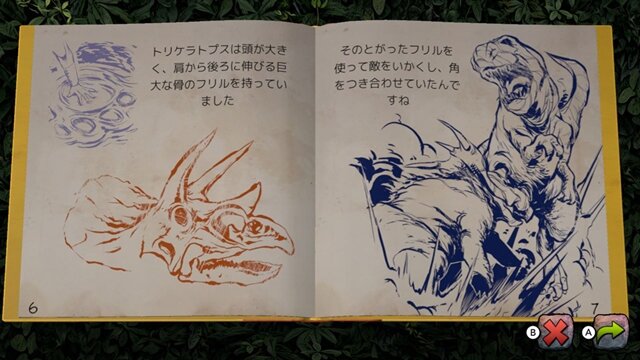 トリケラトプスは頭が大き
く、肩から後ろに伸びる巨
大な骨のフリルを持ってい
ました
そのとがったフリルを
使って敵をいかくし、角
をつき合わせていたんで
すね
6
7
B
A